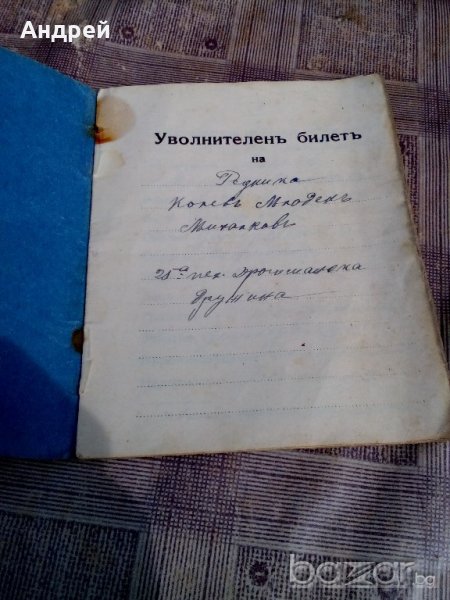 Андрей
Уволнителенъ билетъ
на
Редника
Колевъ Младенъ
Михалковъ
25та пех. драгоманска
дружина
bazar.bg